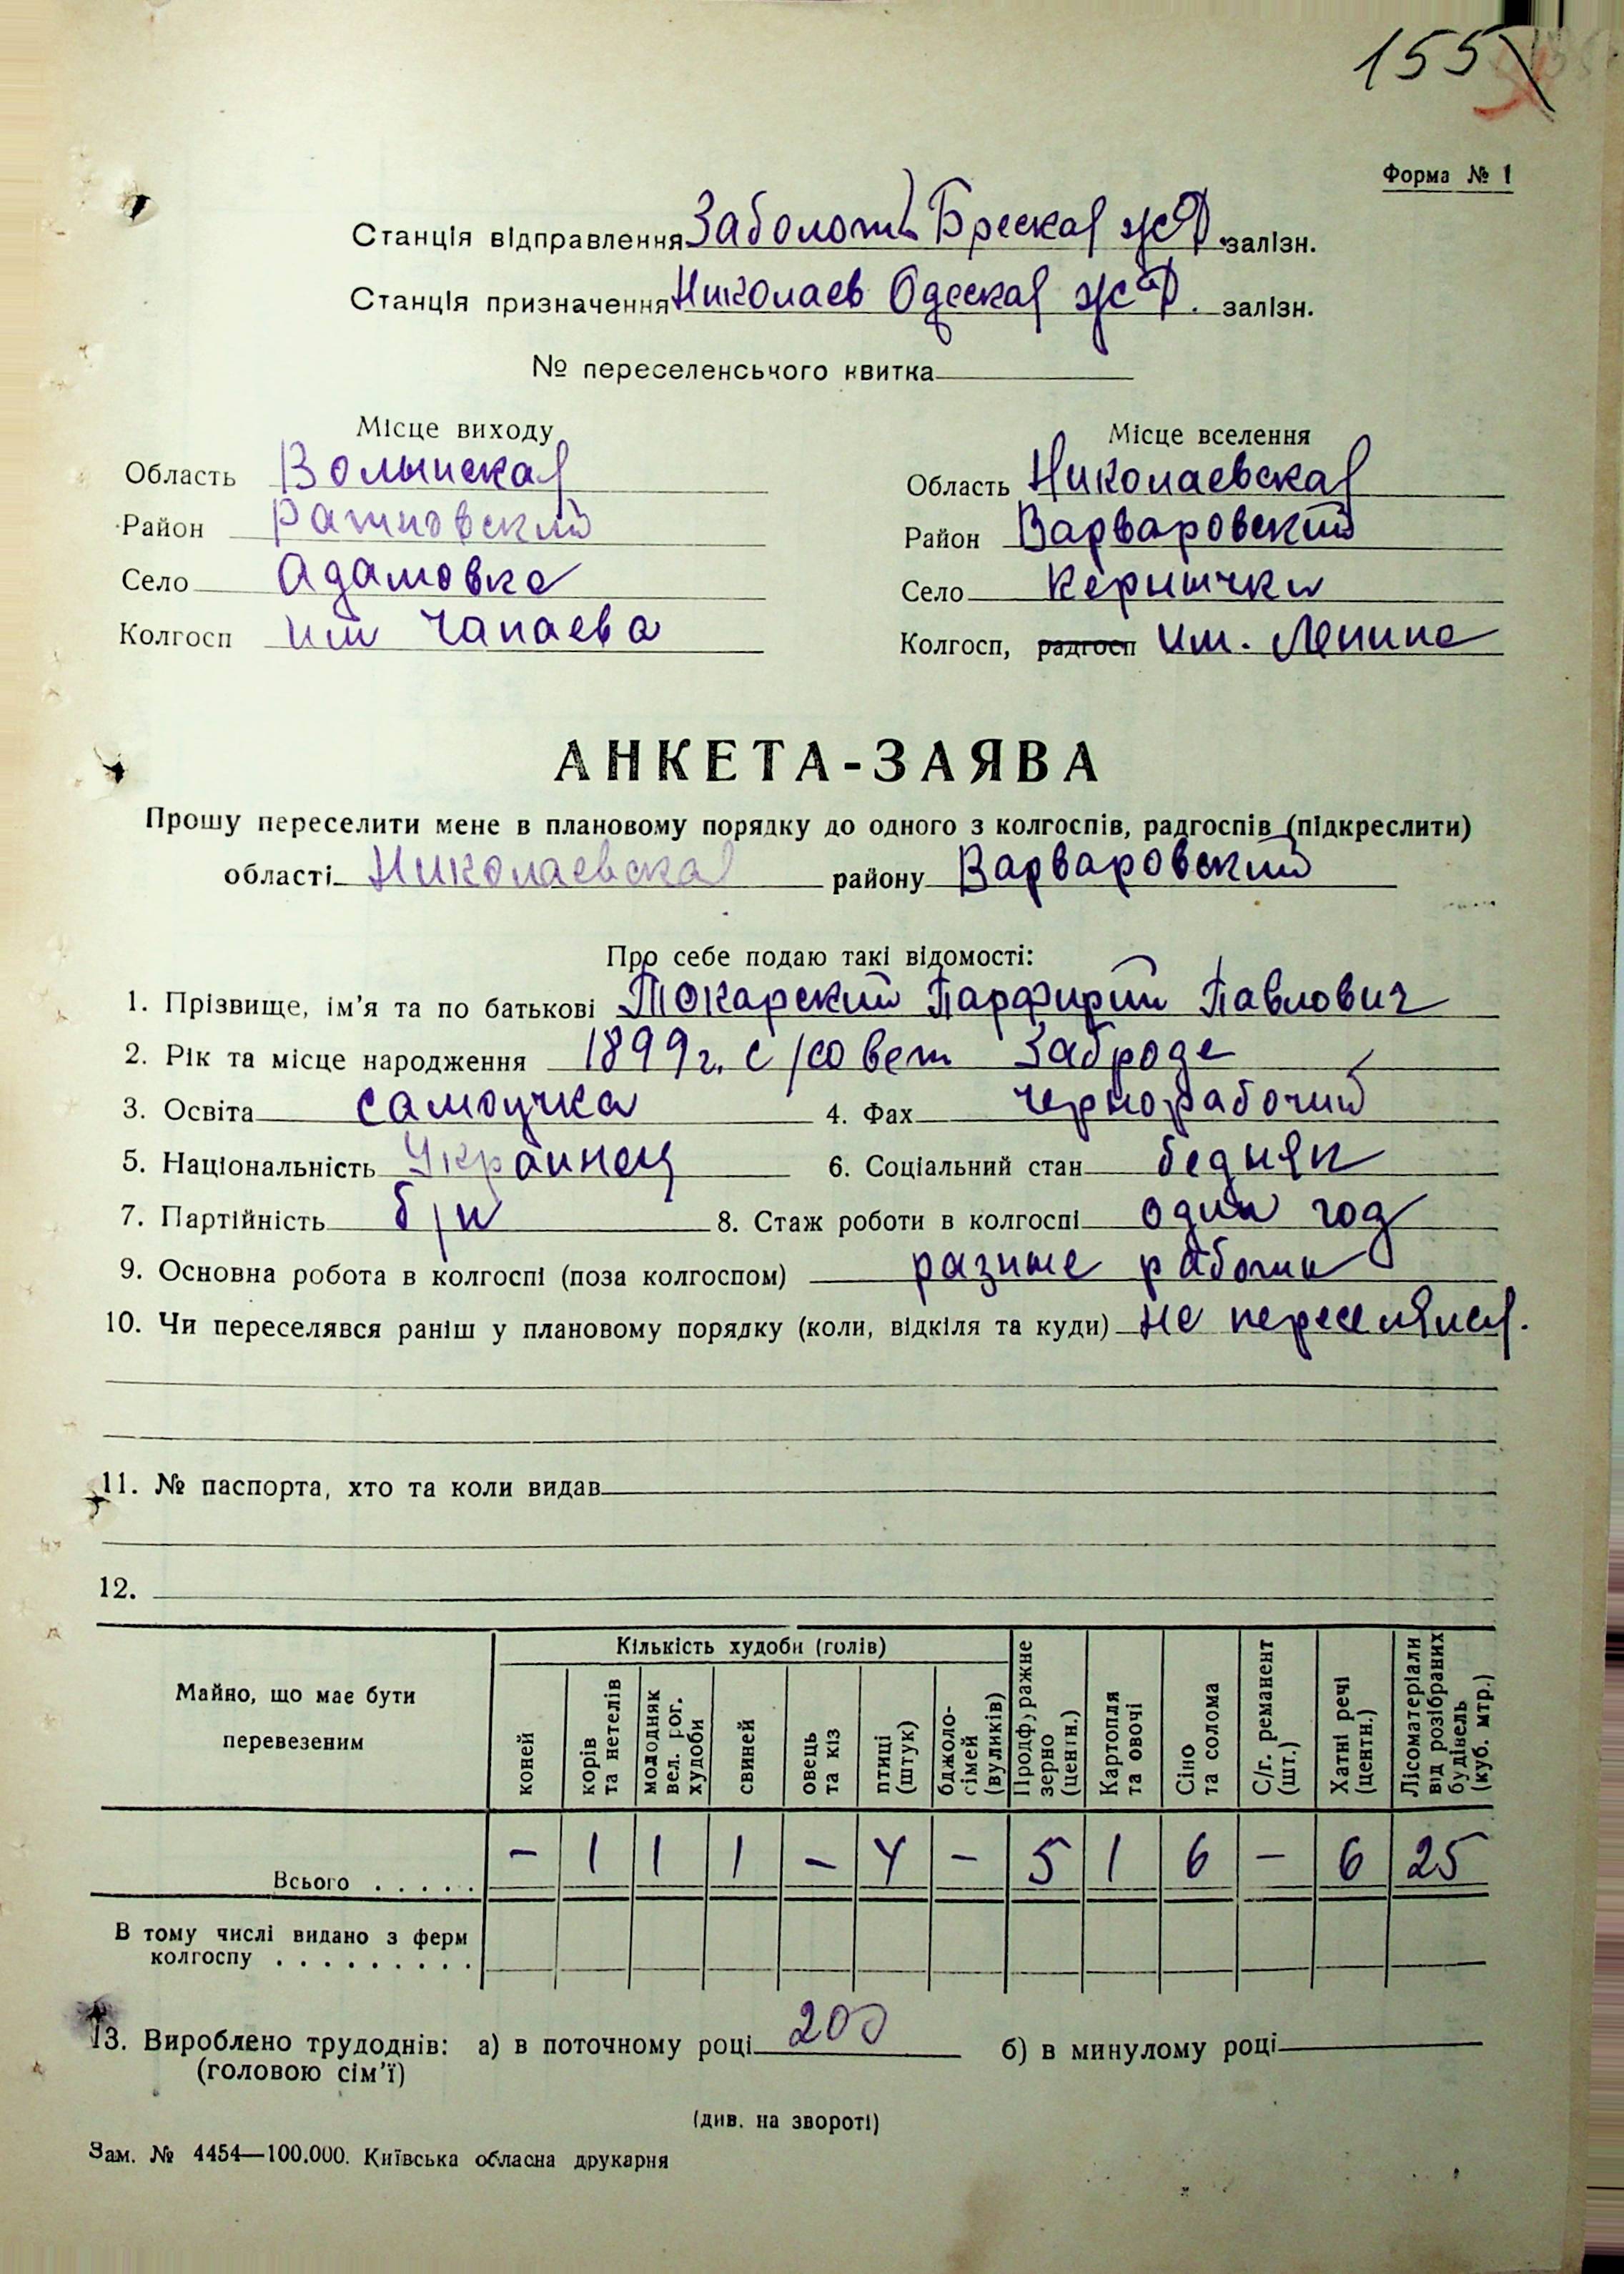 155
Форма № 1
Станція відправлення Заболоть Бреская ж.д. залізн.
Станція призначення Николаев Одеская ж.д. залізн.
№ переселенського квитка
Місце виходу
Місце вселення
Область Волынская
Область Николаевская
Район Ратновский
Район Варваровский
Село Адамовка
Село
Колгосп им Чапаева
Колгосп, радгосп им. Ленина
АНКЕТА-ЗАЯВА
Прошу переселити мене в плановому порядку до одного з колгоспів, радгоспів (підкреслити)
області Николаевская району Варваровский
Про себе подаю такі відомості:
1. Прізвище, ім'я та по батькові Токарский Парфирий Павлович
2. Рік та місце народження 1899 г. с/совет Заброде
3. Освіта самоучка 4. Фах чернорабочий
5. Національність Украинец 6. Соціальний стан бедняк
7. Партійність б/п 8. Стаж роботи в колгоспі один год
9. Основна робота в колгоспі (поза колгоспом) разные работы
10. Чи переселявся раніш у плановому порядку (коли, відкіля та куди) не переселялся.
11. № паспорта, хто та коли видав
12.
Майно, що має бути перевезеним
Кількість худоби (голів)
коней
корів та нетелів
молодняк вел. рог. худоби
свиней
овець та кіз
птиці (штук)
бджоло-сімей (вуликів)
Продфуражне зерно (центн.)
Картопля та овочі
Сіно та солома
С/г. реманент (шт.)
Хатні речі (центн.)
Лісоматеріали від розібраних будівель (куб. мтр.)
Всього . . . . . – 1 1 1 – 4 – 5 1 6 – 6 25
В тому числі видано з ферм
колгоспу . . . . . . . . .
13. Вироблено трудоднів: а) в поточному році 200 б) в минулому році
(головою сім'ї)
(див. на звороті)
Зам. № 4454—100.000. Київська обласна друкарня